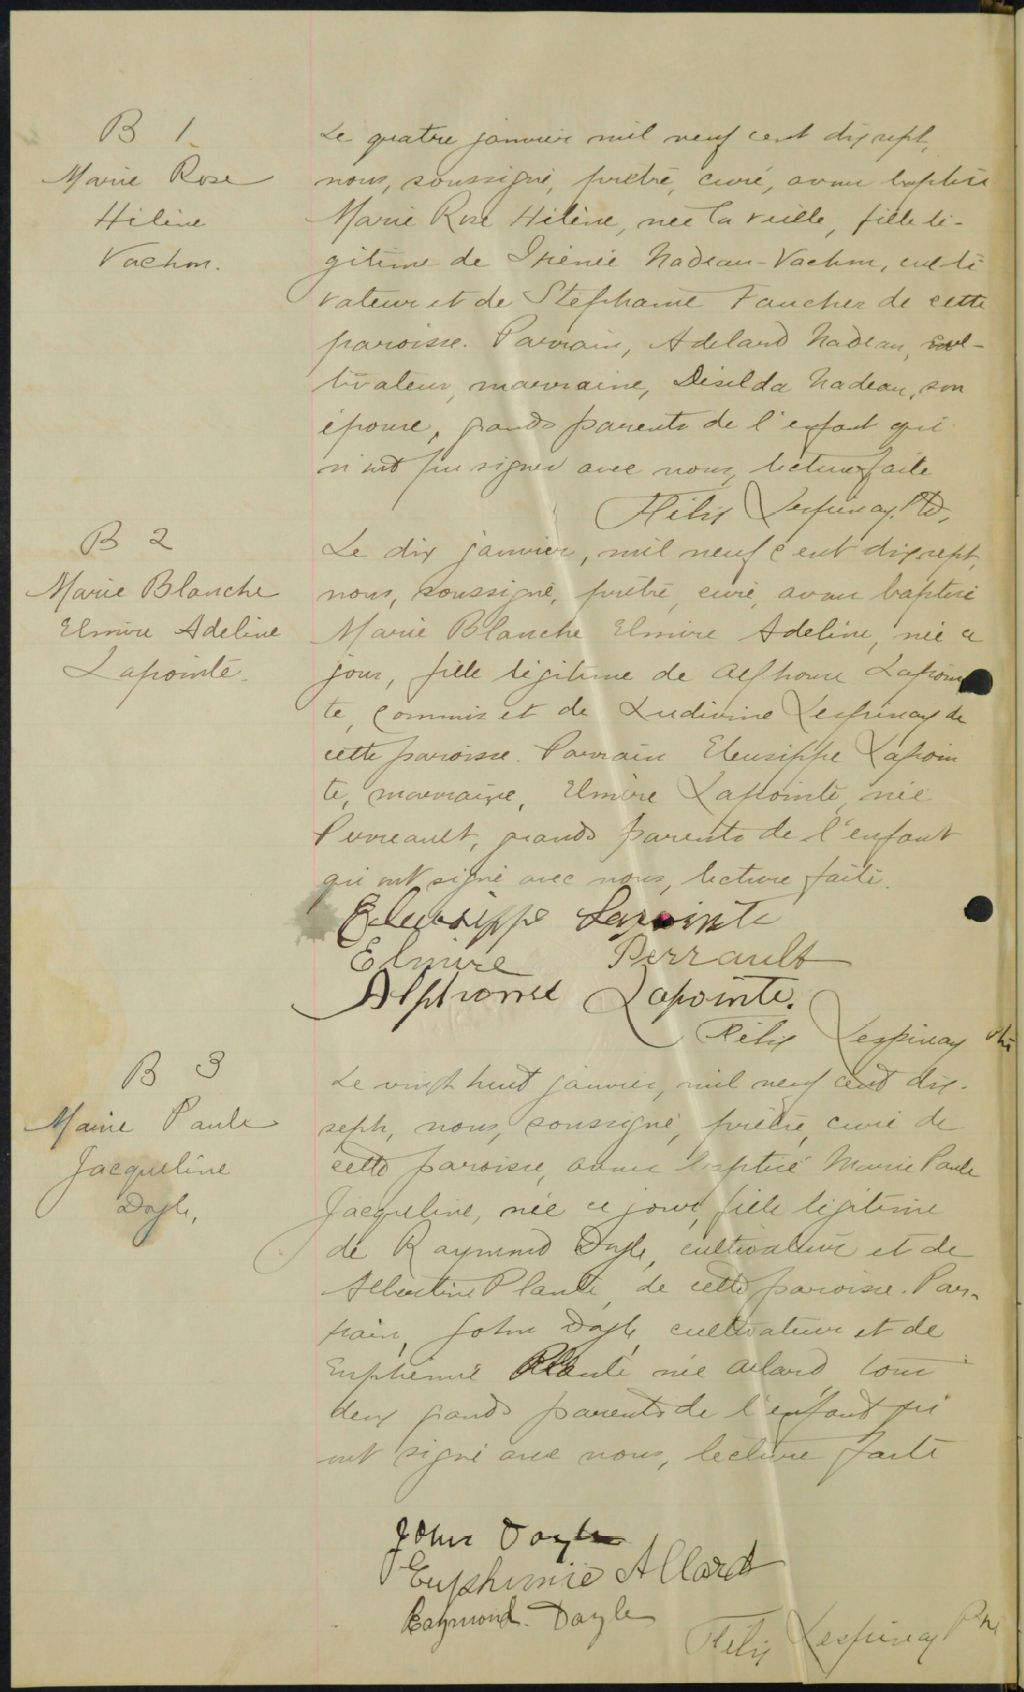 B 1
Marie Rose
Hélène
Vachon.
Le quatre janvier mil neuf cent dix sept,
nous, soussigné, prêtre, curé, avons baptisé
Marie Rose Hélène, née la veille, fille lé-
gitime de Irénée Nadeau-Vachon, culti
vateur et de Stéphanie Faucher de cette
paroisse. Parrain, Adelard Nadeau, cul-
tivateur, marraine, Diselda Nadeau, son
épouse, grands parents de l'enfant qui
n'ont pu signer avec nous, lecture faite
Félix Lespinay. Ptre,
B 2
Marie Blanche
Elmire Adeline
Lapointe.
Le dix janvier, mil neuf cent dix sept,
nous, soussigné, prêtre, curé, avons baptisé
Marie Blanche Elmire Adeline, née ce
jour, fille légitime de Alphonse Lapoin
te, commis et de Ludivine Lespinay de
cette paroisse. Parrain Eleusippe Lapoin
te, marraine, Elmire Lapointe, née
Perreault, grands parents de l'enfant
qui ont signé avec nous, lecture faite.
Eleusippe Lapointe
Elmire Perrault
Alphonse Lapointe.
Félix Lespinay ptre
B 3
Marie Paule
Jacqueline
Doyle,
Le vingt huit janvier, mil neuf cent dix-
sept, nous, soussigné, prêtre, curé de
cette paroisse, avons baptisé Marie Paule
Jacqueline, née ce jour, fille légitime
de Raymond Doyle, cultivateur et de
Albertine Plante, de cette paroisse. Par-
rain, John Doyle, cultivateur et de
Euphémie Plante née Allard, tous
deux grands parents de l'enfant qui
ont signé avec nous, lecture faite
John Doyle
Euphémie Allard
Raymond Doyle
Félix Lespinay Ptre